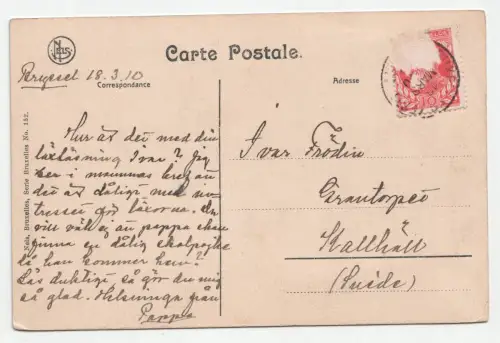 Nels
Carte Postale.
Bryssel 18.3.10
Correspondance
Adresse
Nels, Bruxelles, Serie Bruxelles No. 182.
Hur är det med din
läxläsning Ivar? Jag
ser i mammas bref an
det är dåligt med in-
tresset för läxorna. Du
vill väl ej att pappa skall
finna en dålig skolpojke
då han kommer hem?
Läs duktigt så gör du mig
så glad. Helsningar från
Pappa
Ivar Frödin
Grantorpet
Kallhäll
(Suède)
10